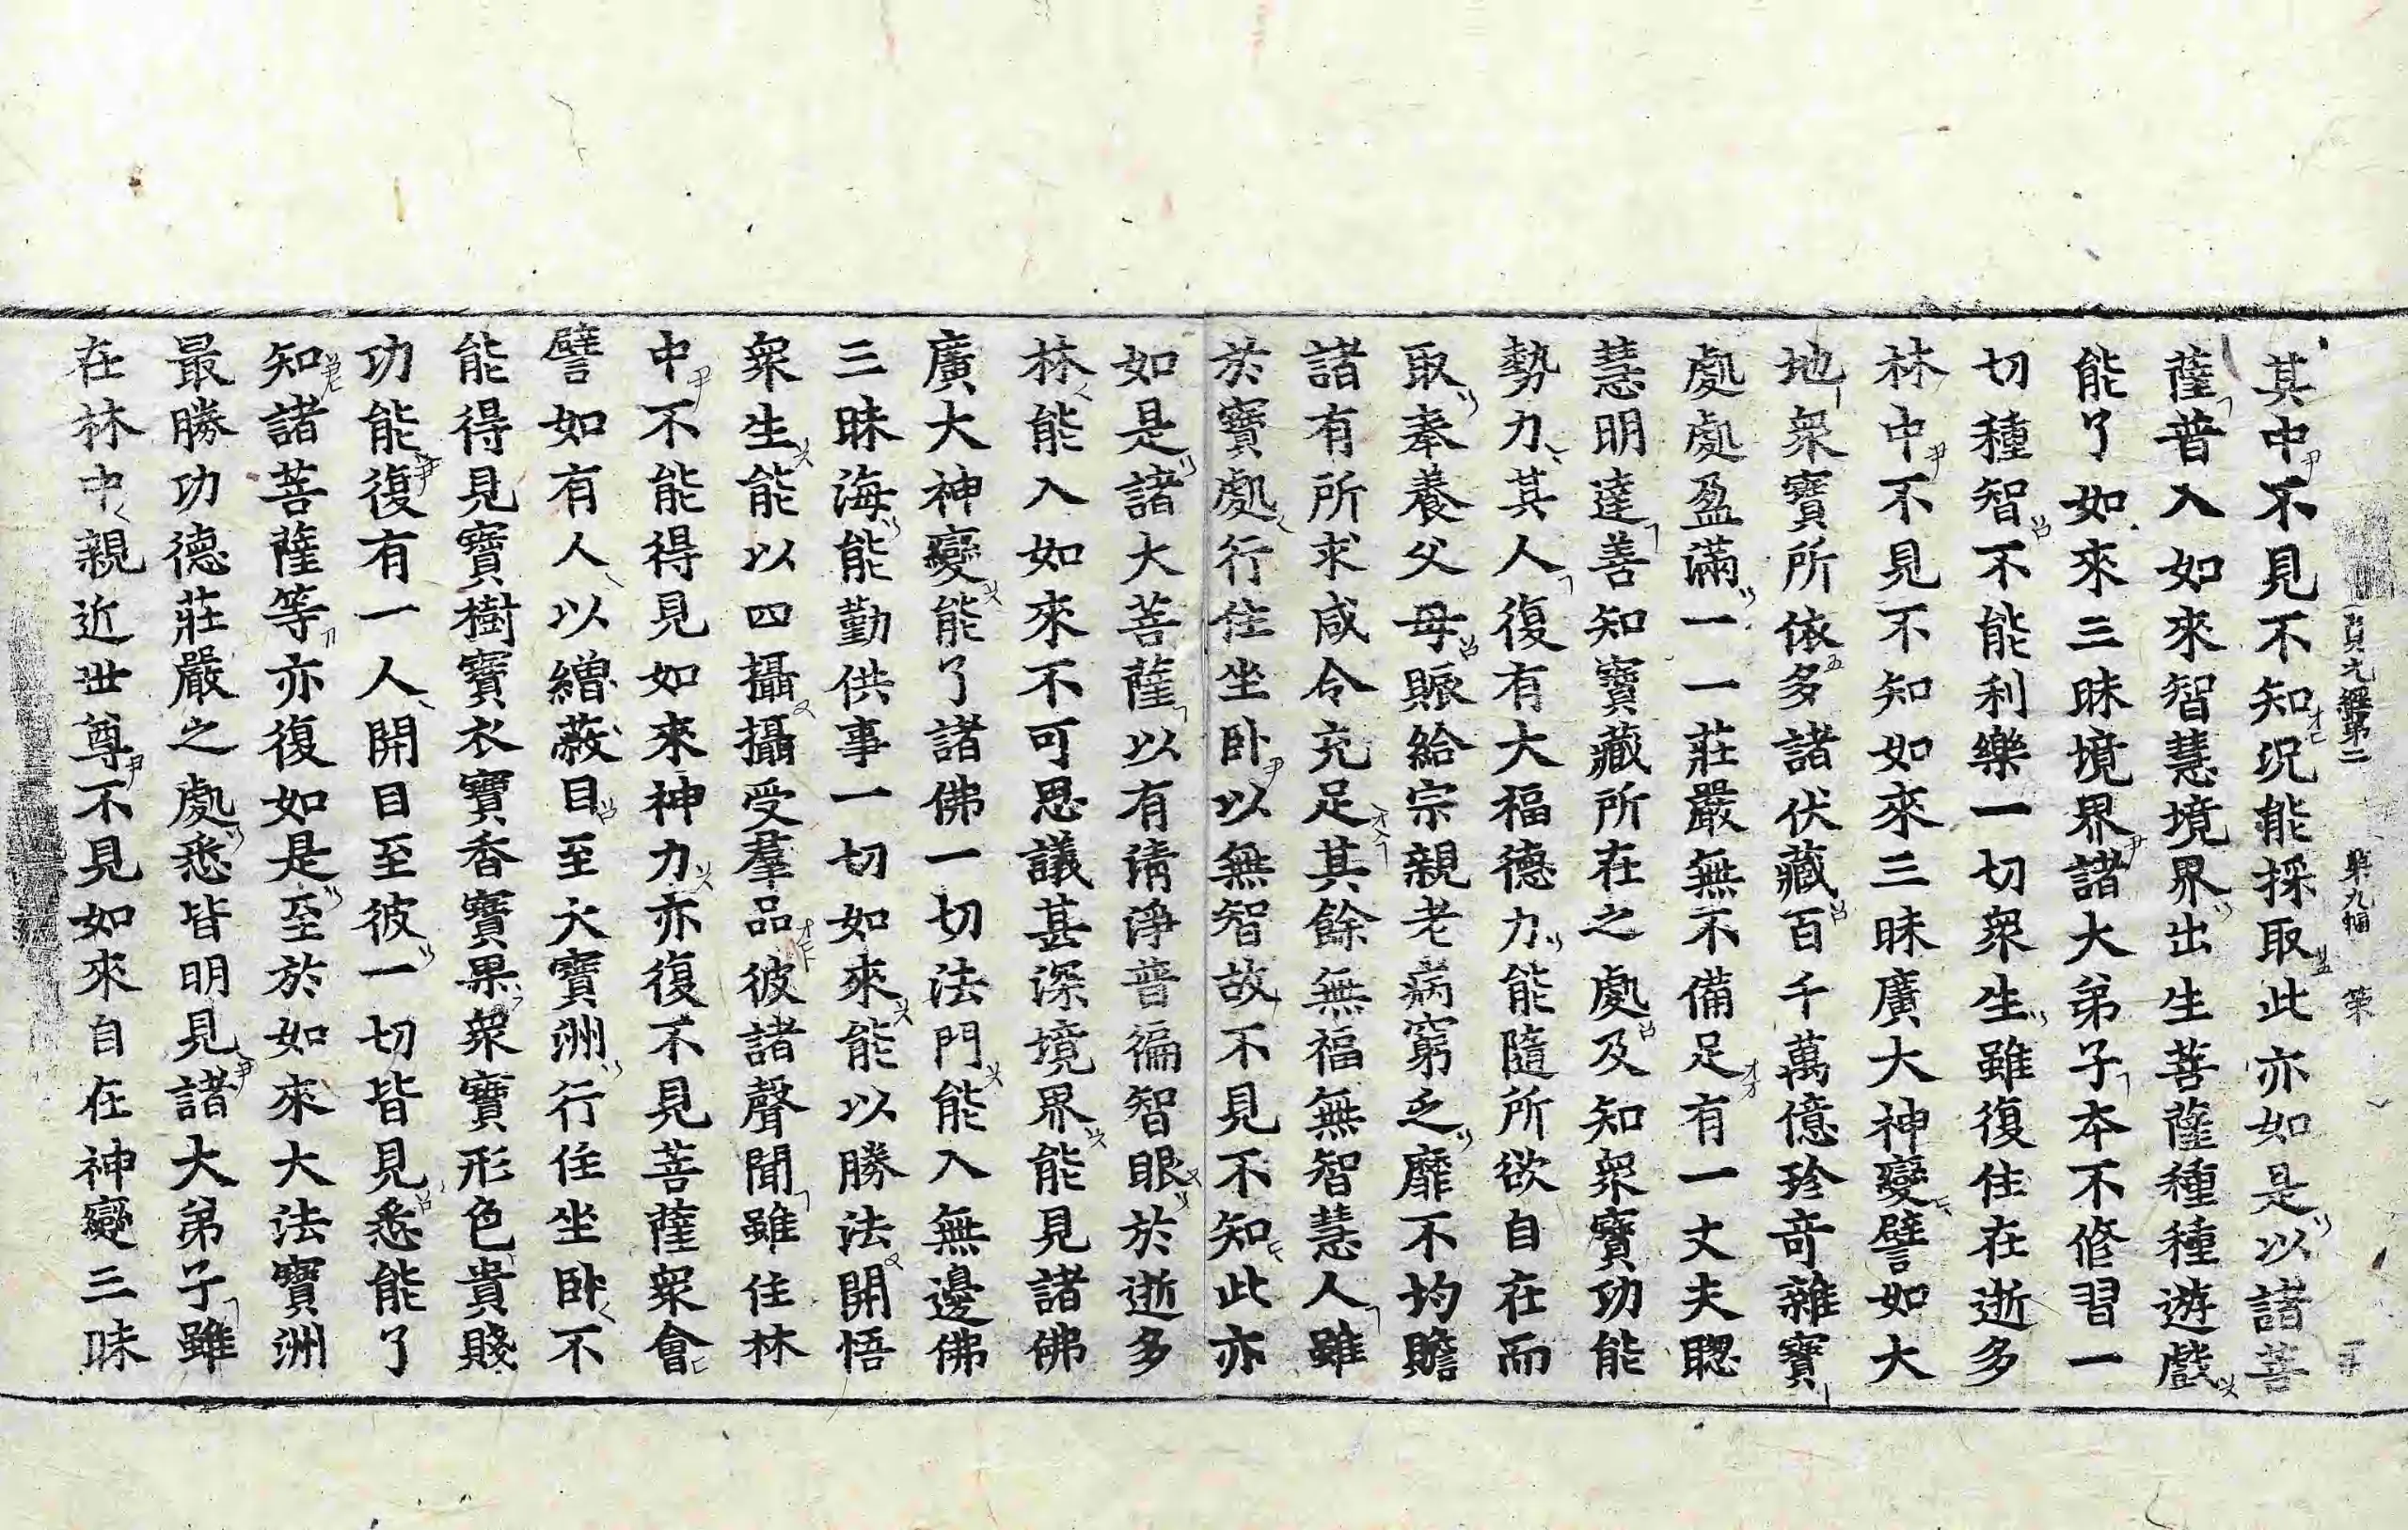 貞元經第二 第九幅
其中不見不知況能採取此亦如是以諸菩
薩普入如來智慧境界出生菩薩種種遊戲
能了如來三昧境界諸大弟子本不修習一
切種智不能利樂一切衆生雖復住在逝多
林中不見不知如來三昧廣大神變譬如大
地衆寶所依多諸伏藏百千萬億珍奇雜寶
處處盈滿一一莊嚴無不備足有一丈夫聦
慧明達善知寶藏所在之處及知衆寶功能
勢力其人復有大福德力能隨所欲自在而
取奉養父母賑給宗親老病窮乏靡不均贍
諸有所求咸令充足其餘無福無智慧人雖
於寶處行住坐卧以無智故不見不知此亦
如是諸大菩薩以有清淨普徧智眼於逝多
林能入如來不可思議甚深境界能見諸佛
廣大神變能了諸佛一切法門能入無邊佛
三昧海能勤供事一切如來能以勝法開悟
衆生能以四攝攝受羣品彼諸聲聞雖住林
中不能得見如來神力亦復不見菩薩衆會
譬如有人以繒蔽目至大寶洲行住坐卧不
能得見寶樹寶衣寶香寶果衆寶形色貴賤
功能復有一人開目至彼一切皆見悉能了
知諸菩薩等亦復如是至於如來大法寶洲
最勝功德莊嚴之處悉皆明見諸大弟子雖
在林中親近世尊不見如來自在神變三昧